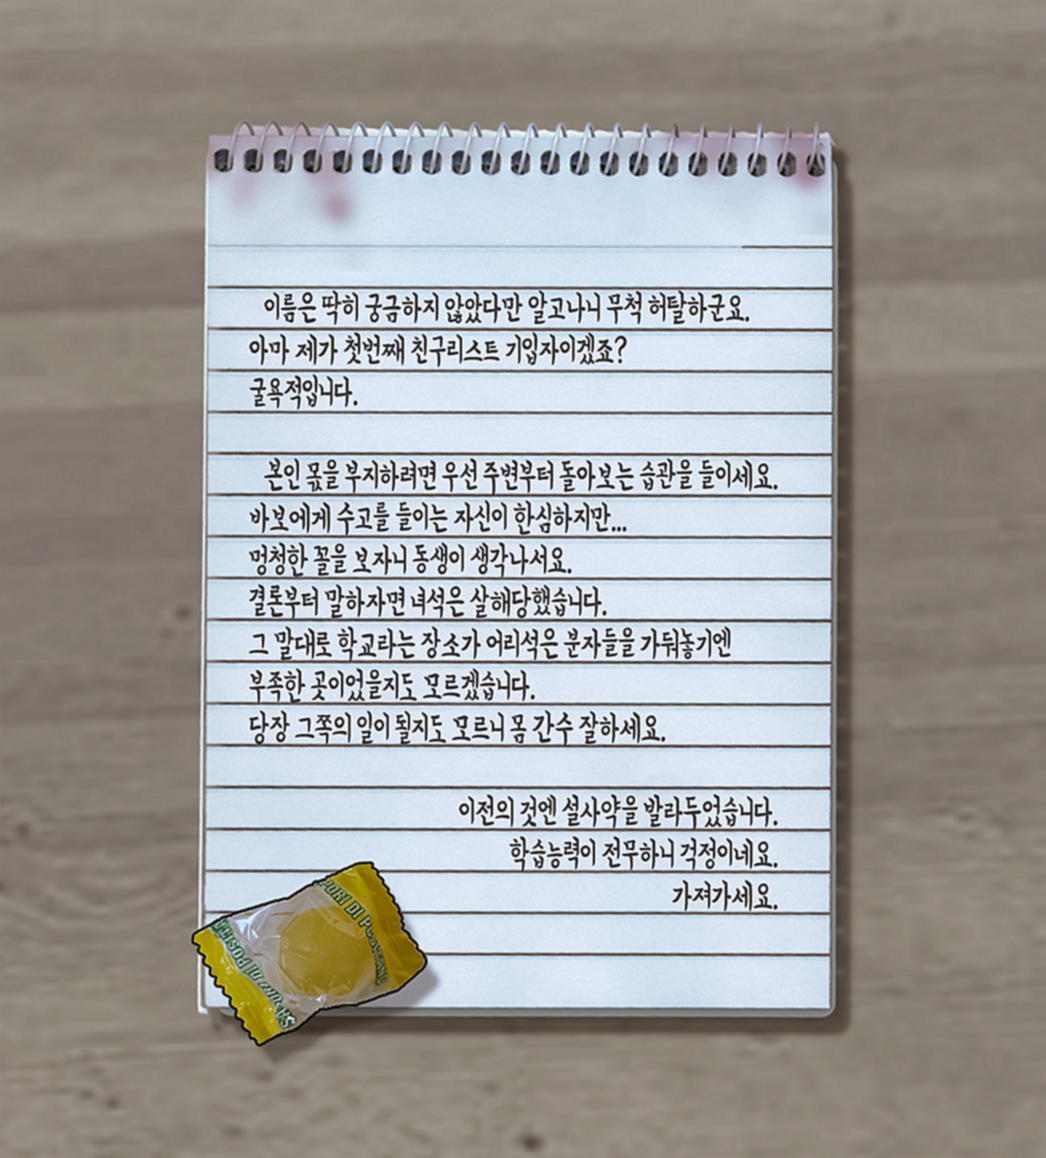 이름은 딱히 궁금하지 않았다만 알고나니 무척 허탈하군요.
아마 제가 첫번째 친구리스트 기입자이겠죠?
굴욕적입니다.
본인 몫을 부지하려면 우선 주변부터 돌아보는 습관을 들이세요.
바보에게 수고를 들이는 자신이 한심하지만...
멍청한 꼴을 보자니 동생이 생각나서요.
결론부터 말하자면 녀석은 살해당했습니다.
그 말대로 학교라는 장소가 어리석은 분자들을 가둬놓기엔
부족한 곳이었을지도 모르겠습니다.
당장 그쪽의 일이 될지도 모르니 몸 간수 잘하세요.
이전의 것엔 설사약을 발라두었습니다.
학습능력이 전무하니 걱정이네요.
가져가세요.
DI
DI POSITA